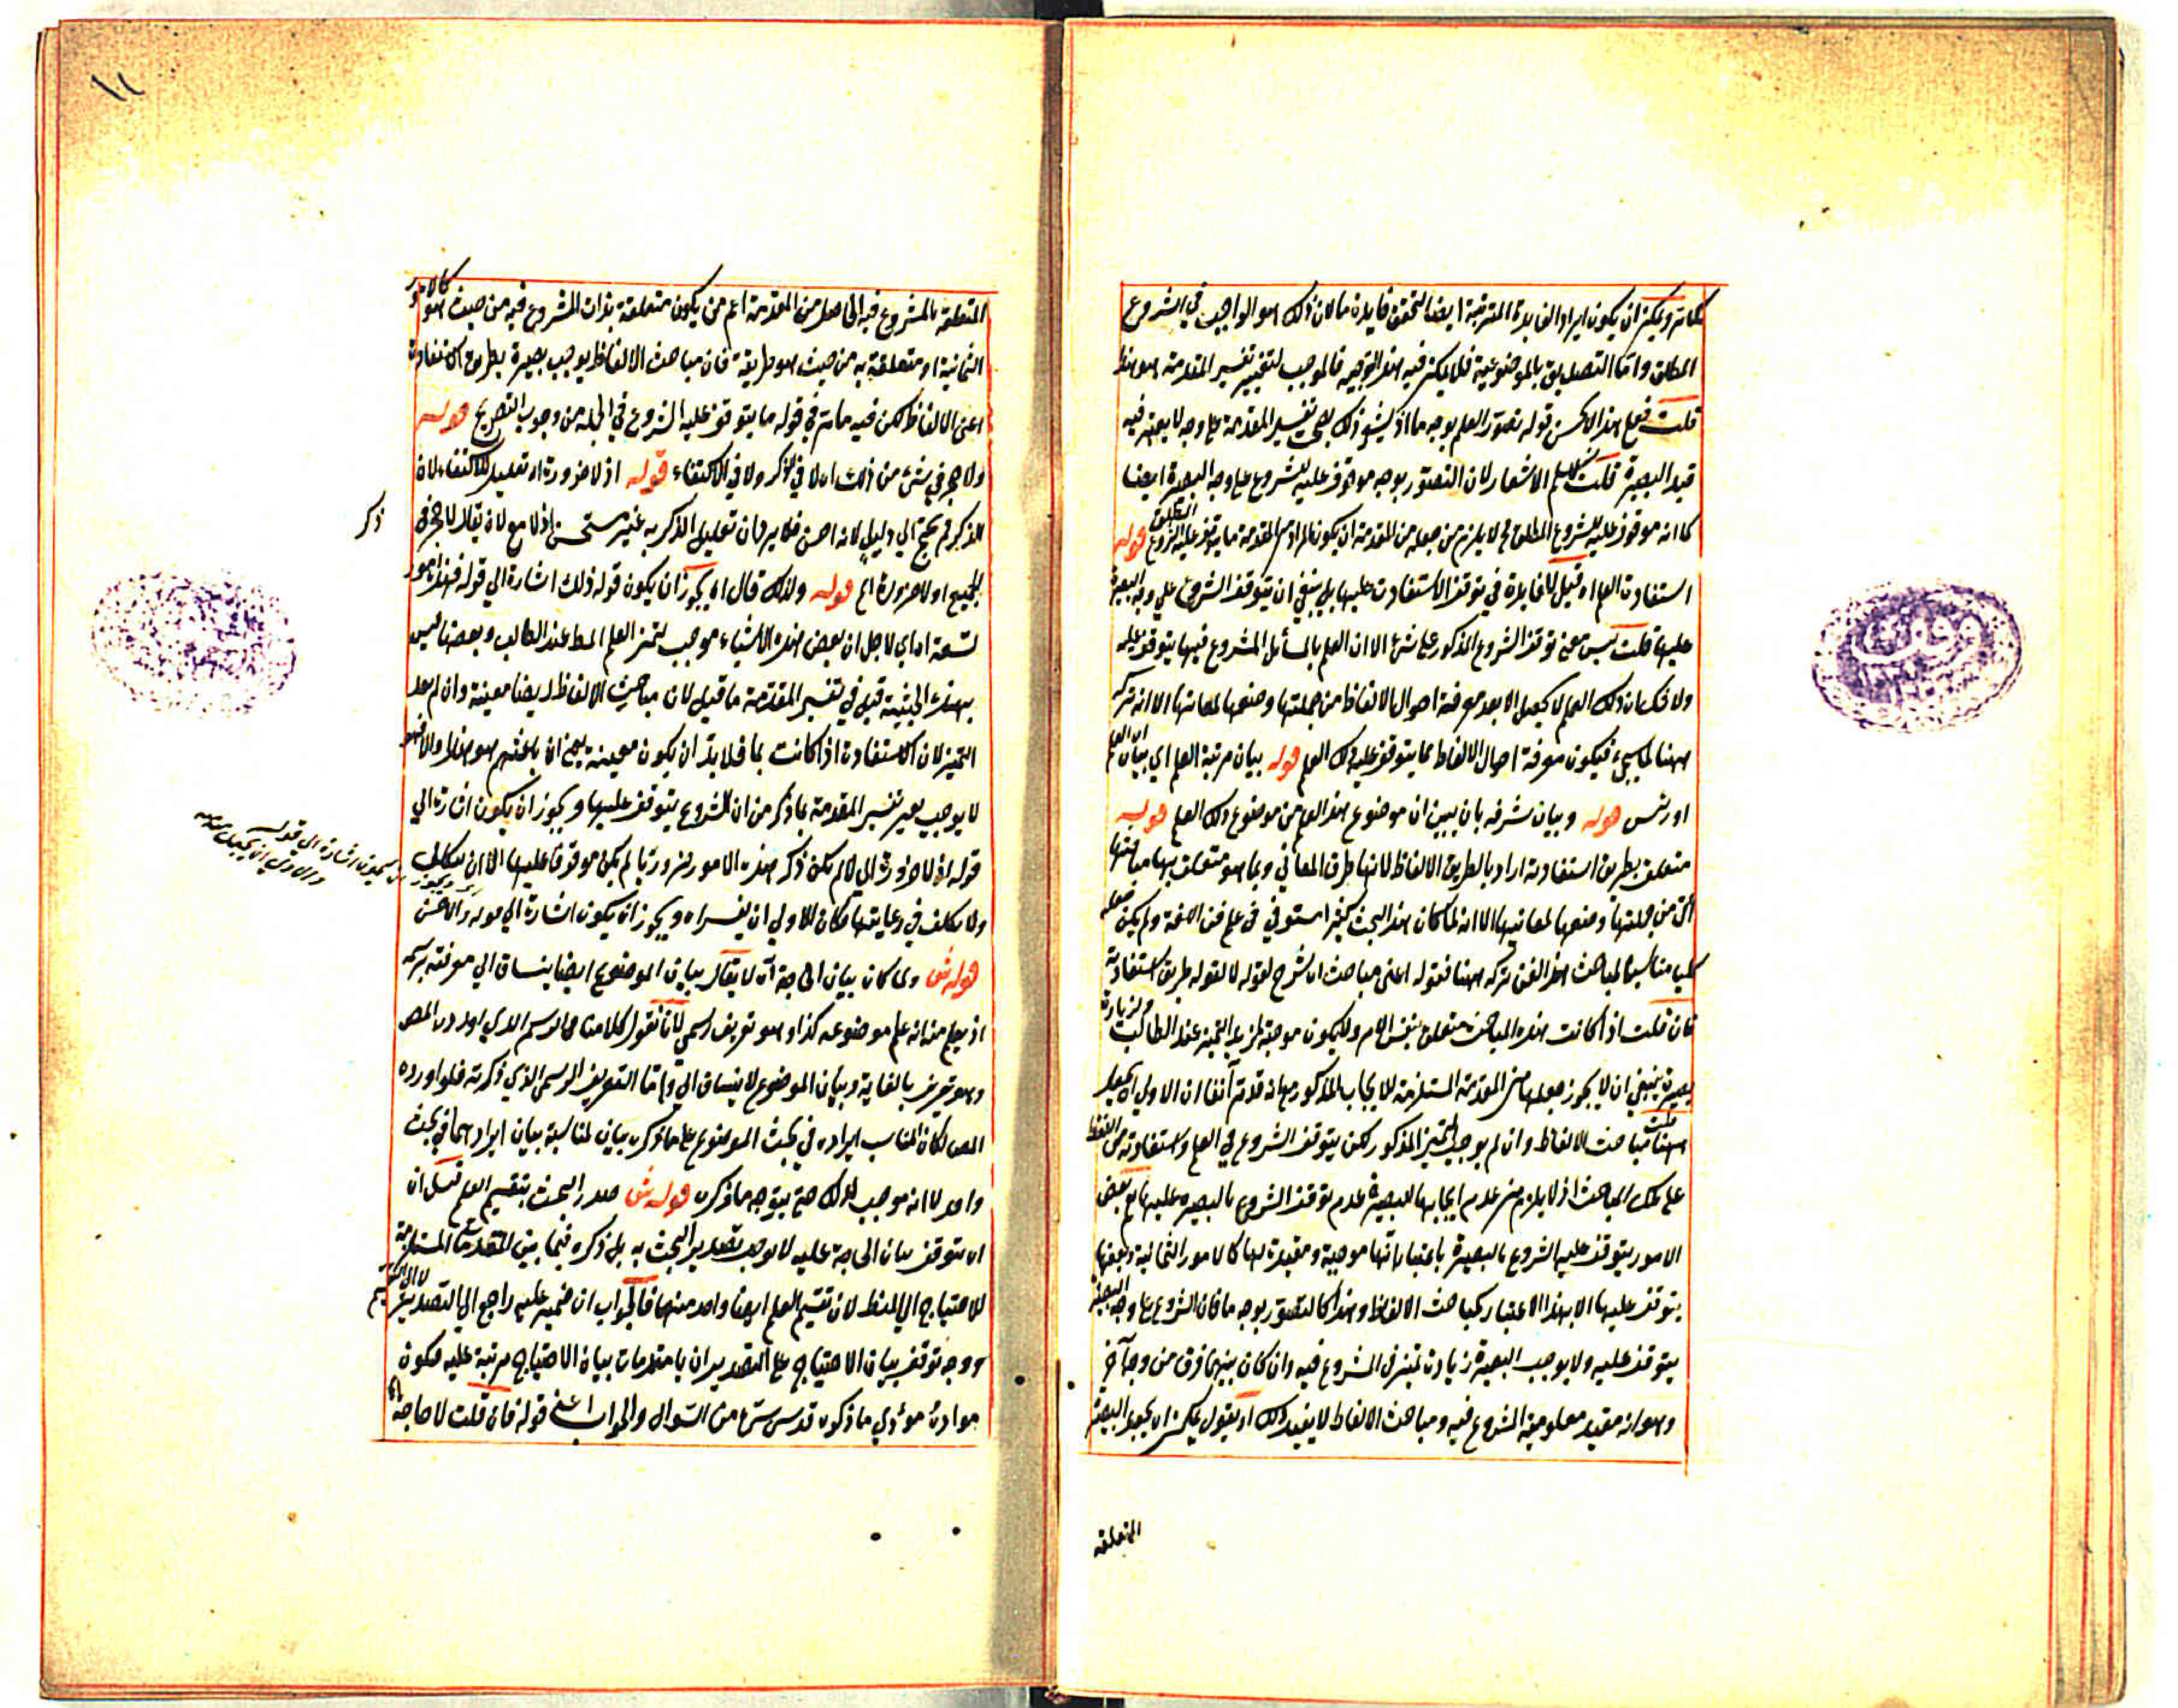 كما مر ويمكن ان يكون ايراد الفايدة المترتبة ايضا لتحقق فايدة ما لان ذلك هو الواجب في الشروع
المطلق واما التصديق بالموضوعية فلا يمكن فيه هذا التوجيه فالموجب لتغيير تفسير المقدمة هو هذا
قلت فعلى هذا الاحسن قوله تصور العلم بوجه ما اذ يشعر ذلك بصحة تفسير المقدمة على وجه لا يعتبر فيه
قيد البصيرة قلت الاشعار لان التصور بوجه موقوف عليه للشروع على وجه البصيرة ايضا
كما انه موقوف عليه للشروع المطلق فح لا يلزم من جعله من المقدمة ان يكون المراد من المقدمة ما يتوقف عليه الشروع المطلق قوله
استفادت العلم اه قيل لا فايدة في توقف الاستفادت عليها بل ينبغي ان يتوقف الشروع على وجه البصيرة
عليها قلت ليس معنى توقف الشروع المذكور على شئ الا ان العلم بالمسائل المشروع فيها يتوقف عليه
ولا شك ان ذلك العلم لا يحصل الا بعد معرفة احوال الالفاظ من جملتها وضعها لمعانيها الا انه ترك
ههنا لما سيجئ فيكون معرفة احوال الالفاظ مما يتوقف عليه ذلك العلم قوله بيان مرتبة العلم اي بيان ان العلم
قوله وبيان شرفه بان يبين ان موضوع هذا العلم من موضوع ذلك العلم قوله
متعلق بطريق استفادته اراد بالطريق الالفاظ لانها طرق المعاني وبما هو متعلق بها مباحثها
التي من جملتها وضعها لمعانيها الا انه لما كان هذا البحث كثير استوفى في علم فن اللغة ولم يكن جعله
مناسبا لمباحث هذا الفن تركه ههنا فقوله اعني مباحث الشرح لقوله لا لقوله طريق استفادته
فان قلت اذا كانت هذه المباحث متعلق بنفس الامر ولا يكون موجبة لمزيد التميز عند الطالب ولزيادة
بصيرة ينبغي ان لا يجوز جعلها من المقدمة المستلزمة للايجاب المذكور مع انه قد مر آنفا ان الاولى ان يجعل
ههنا قلت مباحث الالفاظ وان لم يوجب التميز المذكور لكن يتوقف الشروع في العلم واستفادته من اللفظ
على تلك المباحث اذ لا يلزم من عدم ايجابها للبصيرة عدم توقف الشروع بالبصيرة عليها نعم بعض
الامور يتوقف عليه الشروع بالبصيرة باعتبار انها موجبة ومفيدة لها كالامور الثمانية وبعضها
يتوقف عليها لا بهذا الاعتبار كمباحث الالفاظ وهذا كالتصور بوجه ما فان الشروع على وجه البصيرة
يتوقف عليه ولا يوجب البصيرة زيادت تميز في المشروع فيه وان كان بينهما فرق من وجه آخر
وهو انه مفيد معلومية المشروع فيه ومباحث الالفاظ لا يفيد ذلك او يقول يمكن ان يجعل البصيرة
المتعلقه
١١
المتعلقة بالمشروع فيه الحاصل من المقدمة اعم من ان يكون متعلقة بذات المشروع فيه من حيث هو كالامور
الثمانية او متعلقة به من حيث هو طريقة فان مباحث الالفاظ يوجب بصيرة بطريق استفادة
اعني الالفاظ لكن فيه ما مر في قوله ما يتوقف عليه الشروع في الجملة من وجوب التصريح قوله
ولا حجر في شئ من ذلك اه لا في الذكر ولا في الاكتفاء قوله اذ لا ضرورة اه تعليل للاكتفاء لان
الذكر لم يحتج الى دليل لانه احسن فلا يرد ان تعليل الذكر به غير مستحسن اذ لا مع لان يقال لا حجر في
ذكر
الجميع اذ لا ضرورة الخ قوله ولذلك قال اه يجوز ان يكون قوله ذلك اشارة الى قوله فهذه امور
تسعة اه اي لاجل ان بعض هذه الاشياء موجب لتميز العلم المط عند الطالب وبعضها ليس
بهذه الحيثية قيل في تفسير المقدمة ما قيل لان مباحث الالفاظ ايضا معينة وان لم يعد
التميز لان الاستفادت اذا كانت بها فلا بد ان يكون معينة يعني ان باعثهم هو هذا والا فهو
لا يوجب بغير تفسير المقدمة بما ذكر من ان الشروع يتوقف عليها ويجوز ان يكون اشارة الى
قوله اذ لا ضرورة الى لم يكن ذكر هذه الامور ضروريا لم يكن موقوفا عليها الا ان
ولا تكلف في رعايتها فكان الاولى ان يفسر اه ويجوز ان يكون اشارة الى قوله والاحسن
قوله ش ولما كان بيان الحاجة آه لا يقال بيان الموضوع ايضا ينساق الى معرفته برسمه
اذ يعلم منه انه علم موضوعه كذا وهو تعريف رسمي لانا نقول كلامنا في الرسم الذي اورده المص
وهو تعريف بالغاية وبيان الموضوع لا ينساق اليه واما التعريف الرسمي الذي ذكرته فلو اورده
المص لكان المناسب ايراده في بحث الموضوع على ما ذكره بيان لمناسبة بيان ايرادهما في بحث
واحد لا انه موجب لذلك حتى يتوجه ما ذكره قوله ش صدر البحث بتقسيم العلم قيل ان
اه يتوقف بيان الحاجة عليه لا يوجب تصدير البحث به بل ذكره فيما بين المقدمات المستلزمة
للاحتياج الى المنطق لان تقسيم العلم ايضا واحد منها فالجواب ان ضمير عليه راجع الى التصدير لا الى التقسيم
ووجه توقف بيان الاحتياج على التصدير ان ما مقدمات بيان الاحتياج مرتبة عليه فيكون
مواده مؤدي ما ذكره قدس سره من السؤال والجواب اعني قوله فان قلت لا حاجة